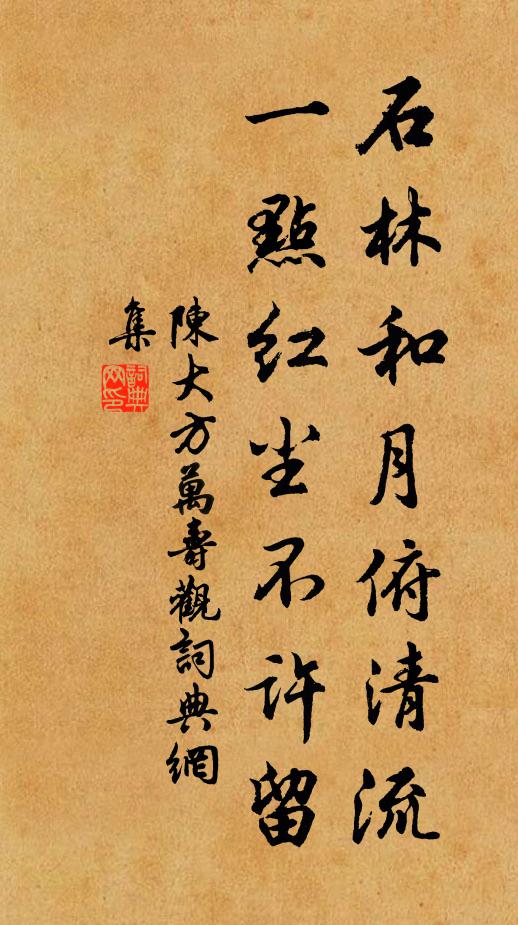 石林和月俯清流
一點红尘不许留
陳大方萬壽觀詞典網
集
詞典网印